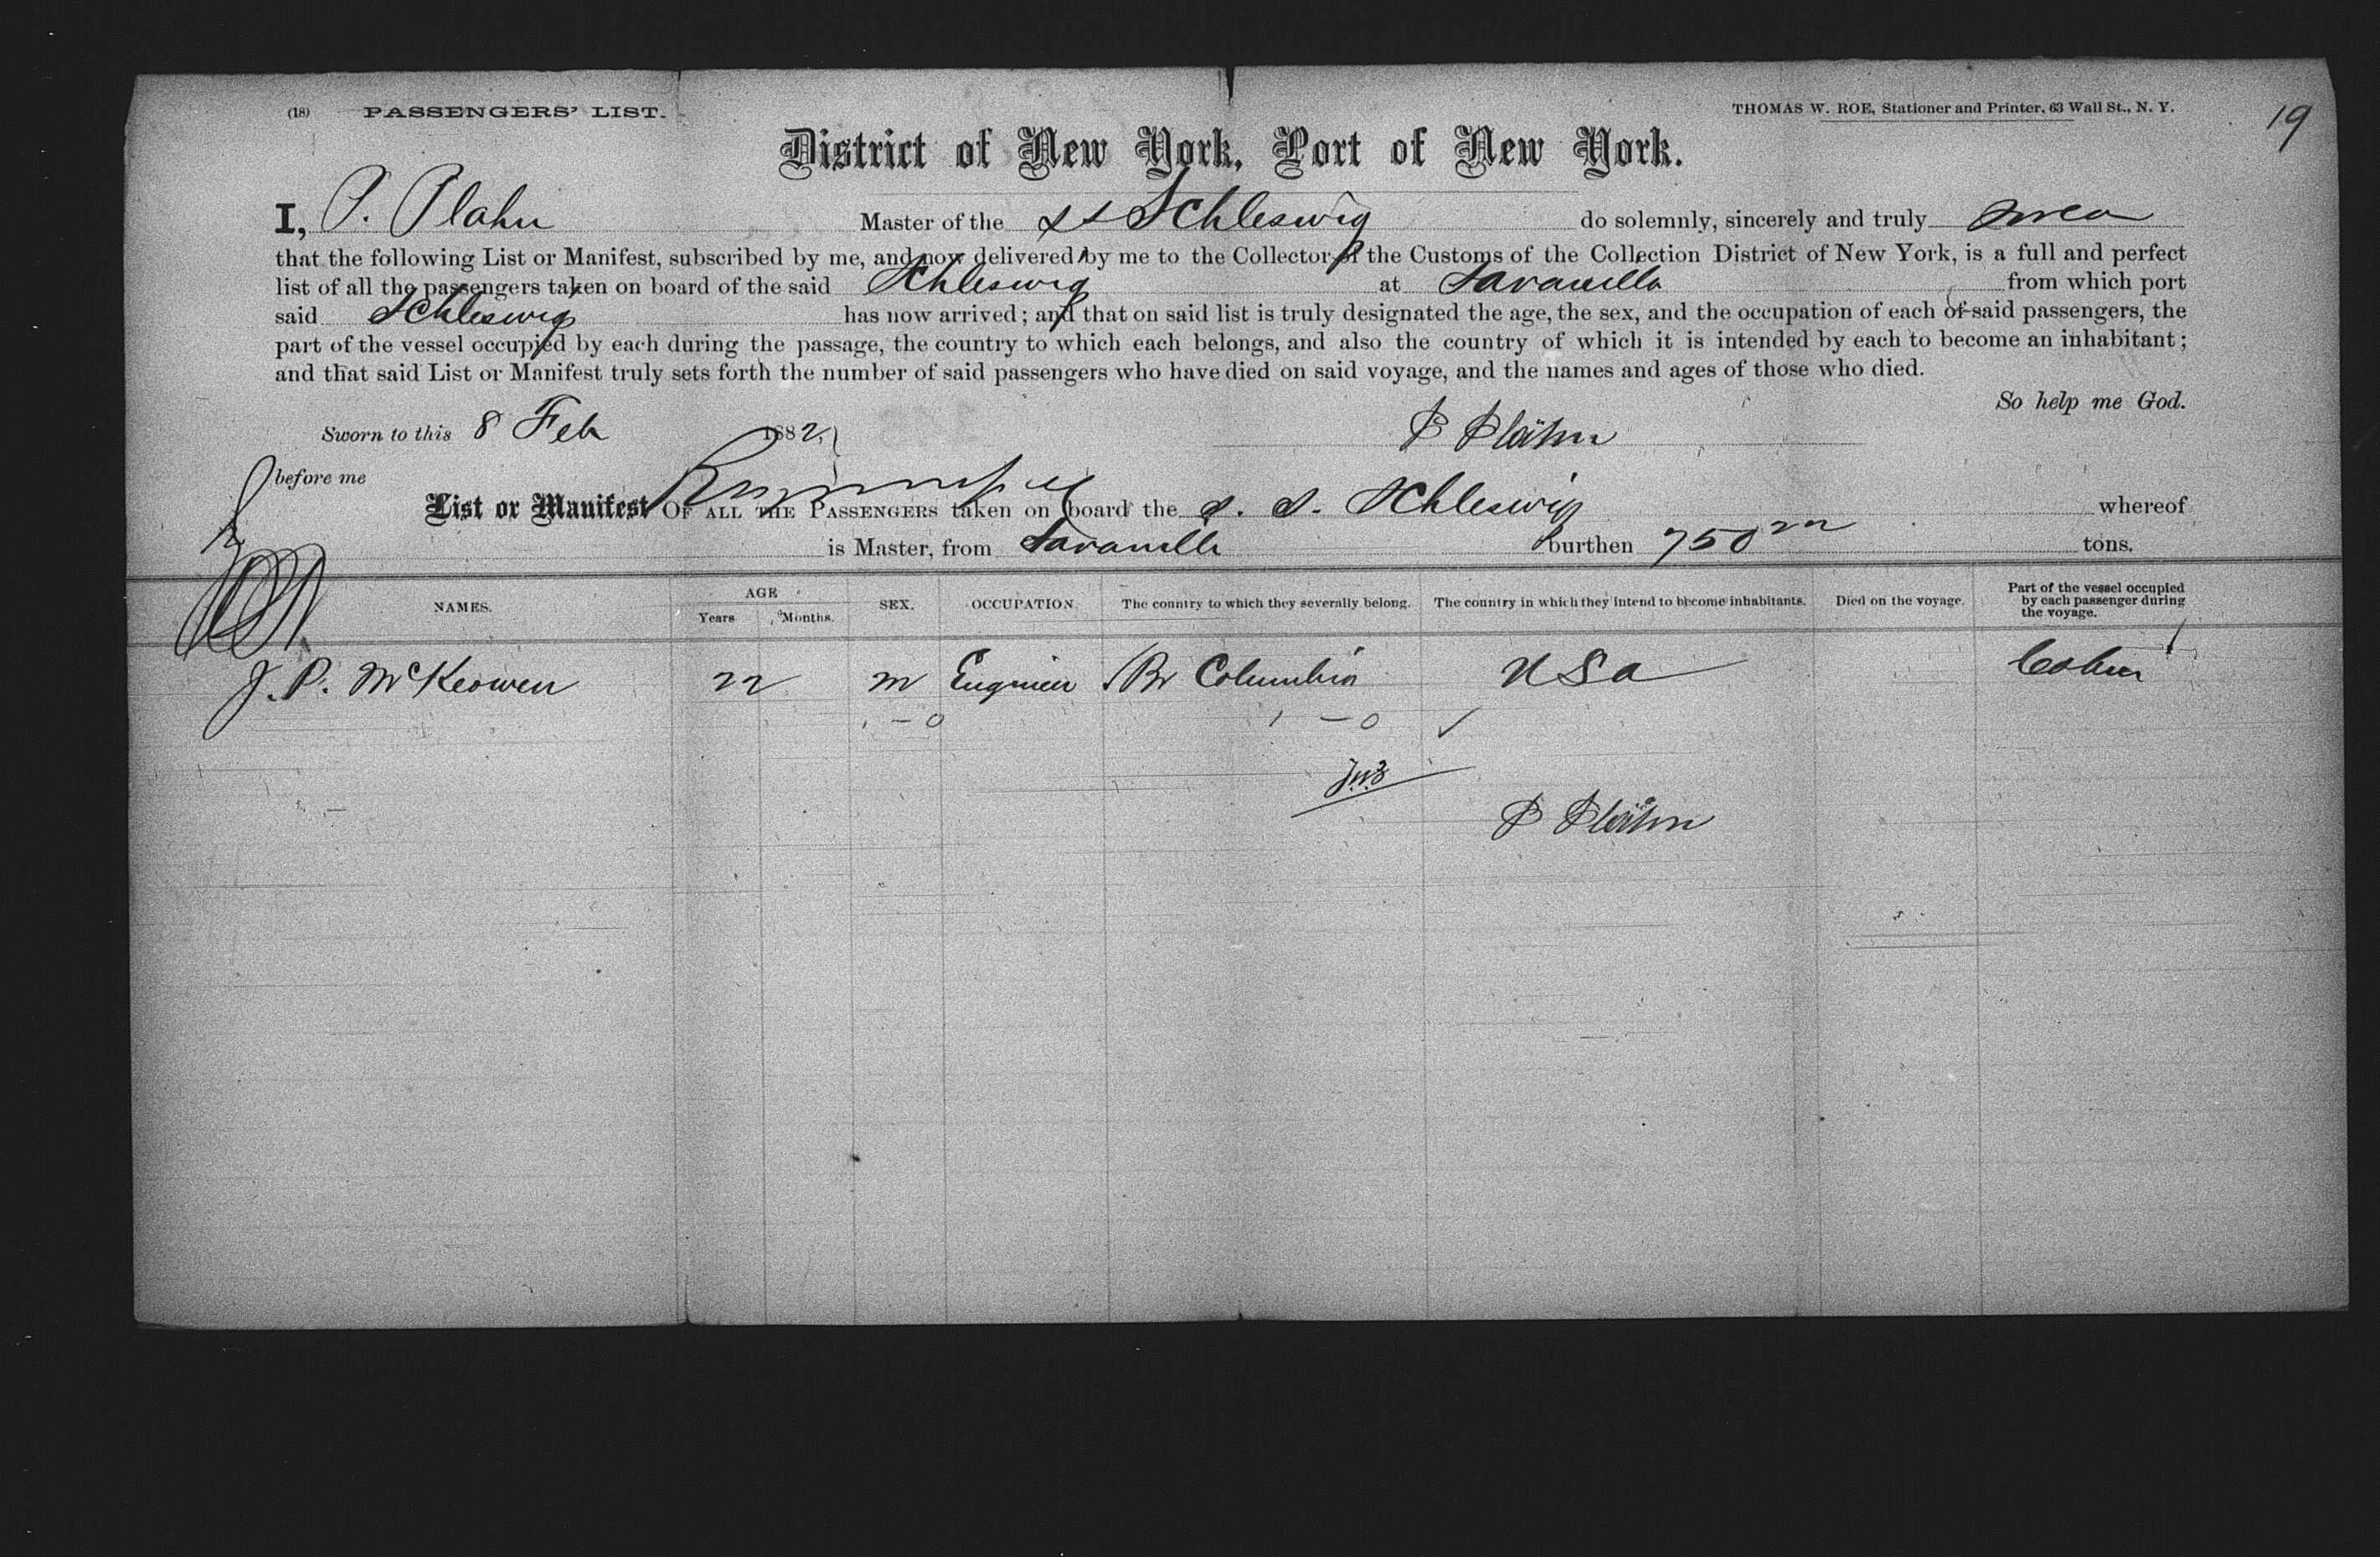 (18) PASSENGERS' LIST.
THOMAS W. ROE, Stationer and Printer, 63 Wall St., N. Y.
19
District of New York, Port of New York.
I, P. Plahn Master of the SS Schleswig do solemnly, sincerely and truly swear
that the following List or Manifest, subscribed by me, and now delivered by me to the Collector of the Customs of the Collection District of New York, is a full and perfect
list of all the passengers taken on board of the said Schleswig at Savanilla from which port
said Schleswig has now arrived; and that on said list is truly designated the age, the sex, and the occupation of each of said passengers, the
part of the vessel occupied by each during the passage, the country to which each belongs, and also the country of which it is intended by each to become an inhabitant;
and that said List or Manifest truly sets forth the number of said passengers who have died on said voyage, and the names and ages of those who died.
So help me God.
Sworn to this 8 Feb 1882, P Plähn
before me
List or Manifest OF ALL THE PASSENGERS taken on board the S. S. Schleswig whereof
is Master, from Savanilla burthen 750 tons.
NAMES. AGE Years Months. SEX. OCCUPATION. The country to which they severally belong. The country in which they intend to become inhabitants. Died on the voyage. Part of the vessel occupied by each passenger during the voyage.
J. P. McKeowen 22 m Engineer Br Columbia USA Cabin
1 – 0 1 – 0 ✓
P Plähn